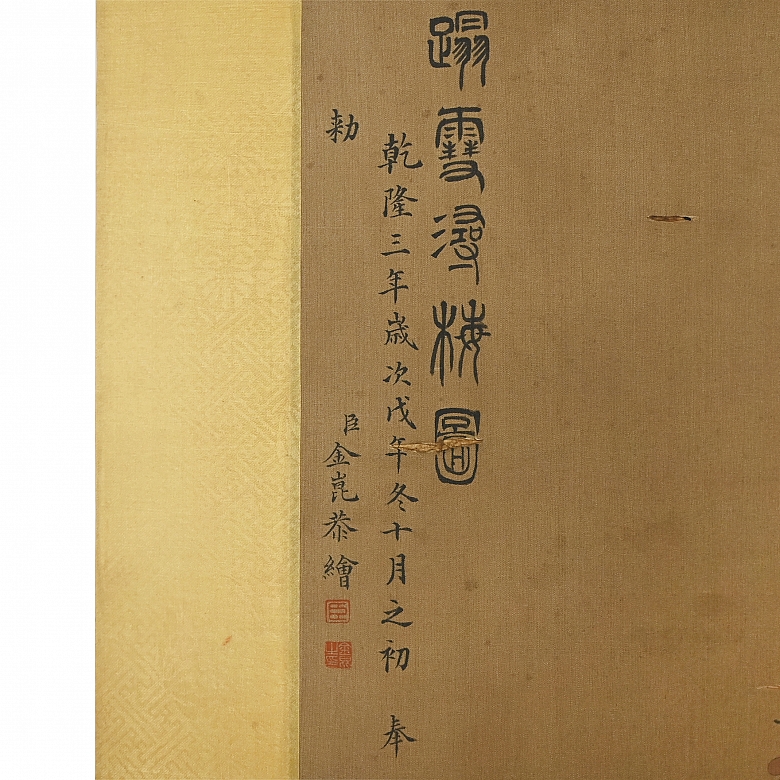 蹋雪尋梅圖
乾隆三年歲次戊午冬十月之初 奉
勅
臣金崑恭繪
臣